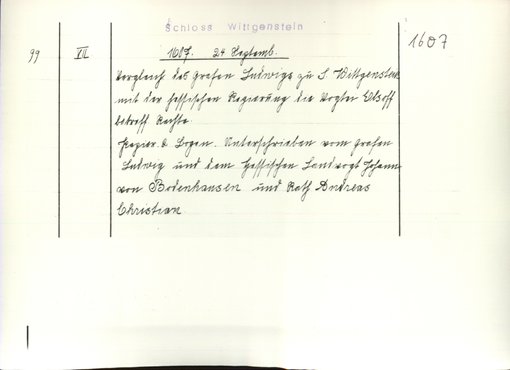 Schloss Wittgenstein
1607
99 VII 1607. 24 Septemb.
Vergleich des Grafen Ludwigs zu S. Wittgenstein
mit der hessischen Regierung die Vogtei Elsoff
betreff Rechte.
Papier. 6 Bogen. Unterschrieben vom Grafen
Ludwig und dem Hessischen Landvogt Johann
von Bodenhausen und Rath Andreas
Christian